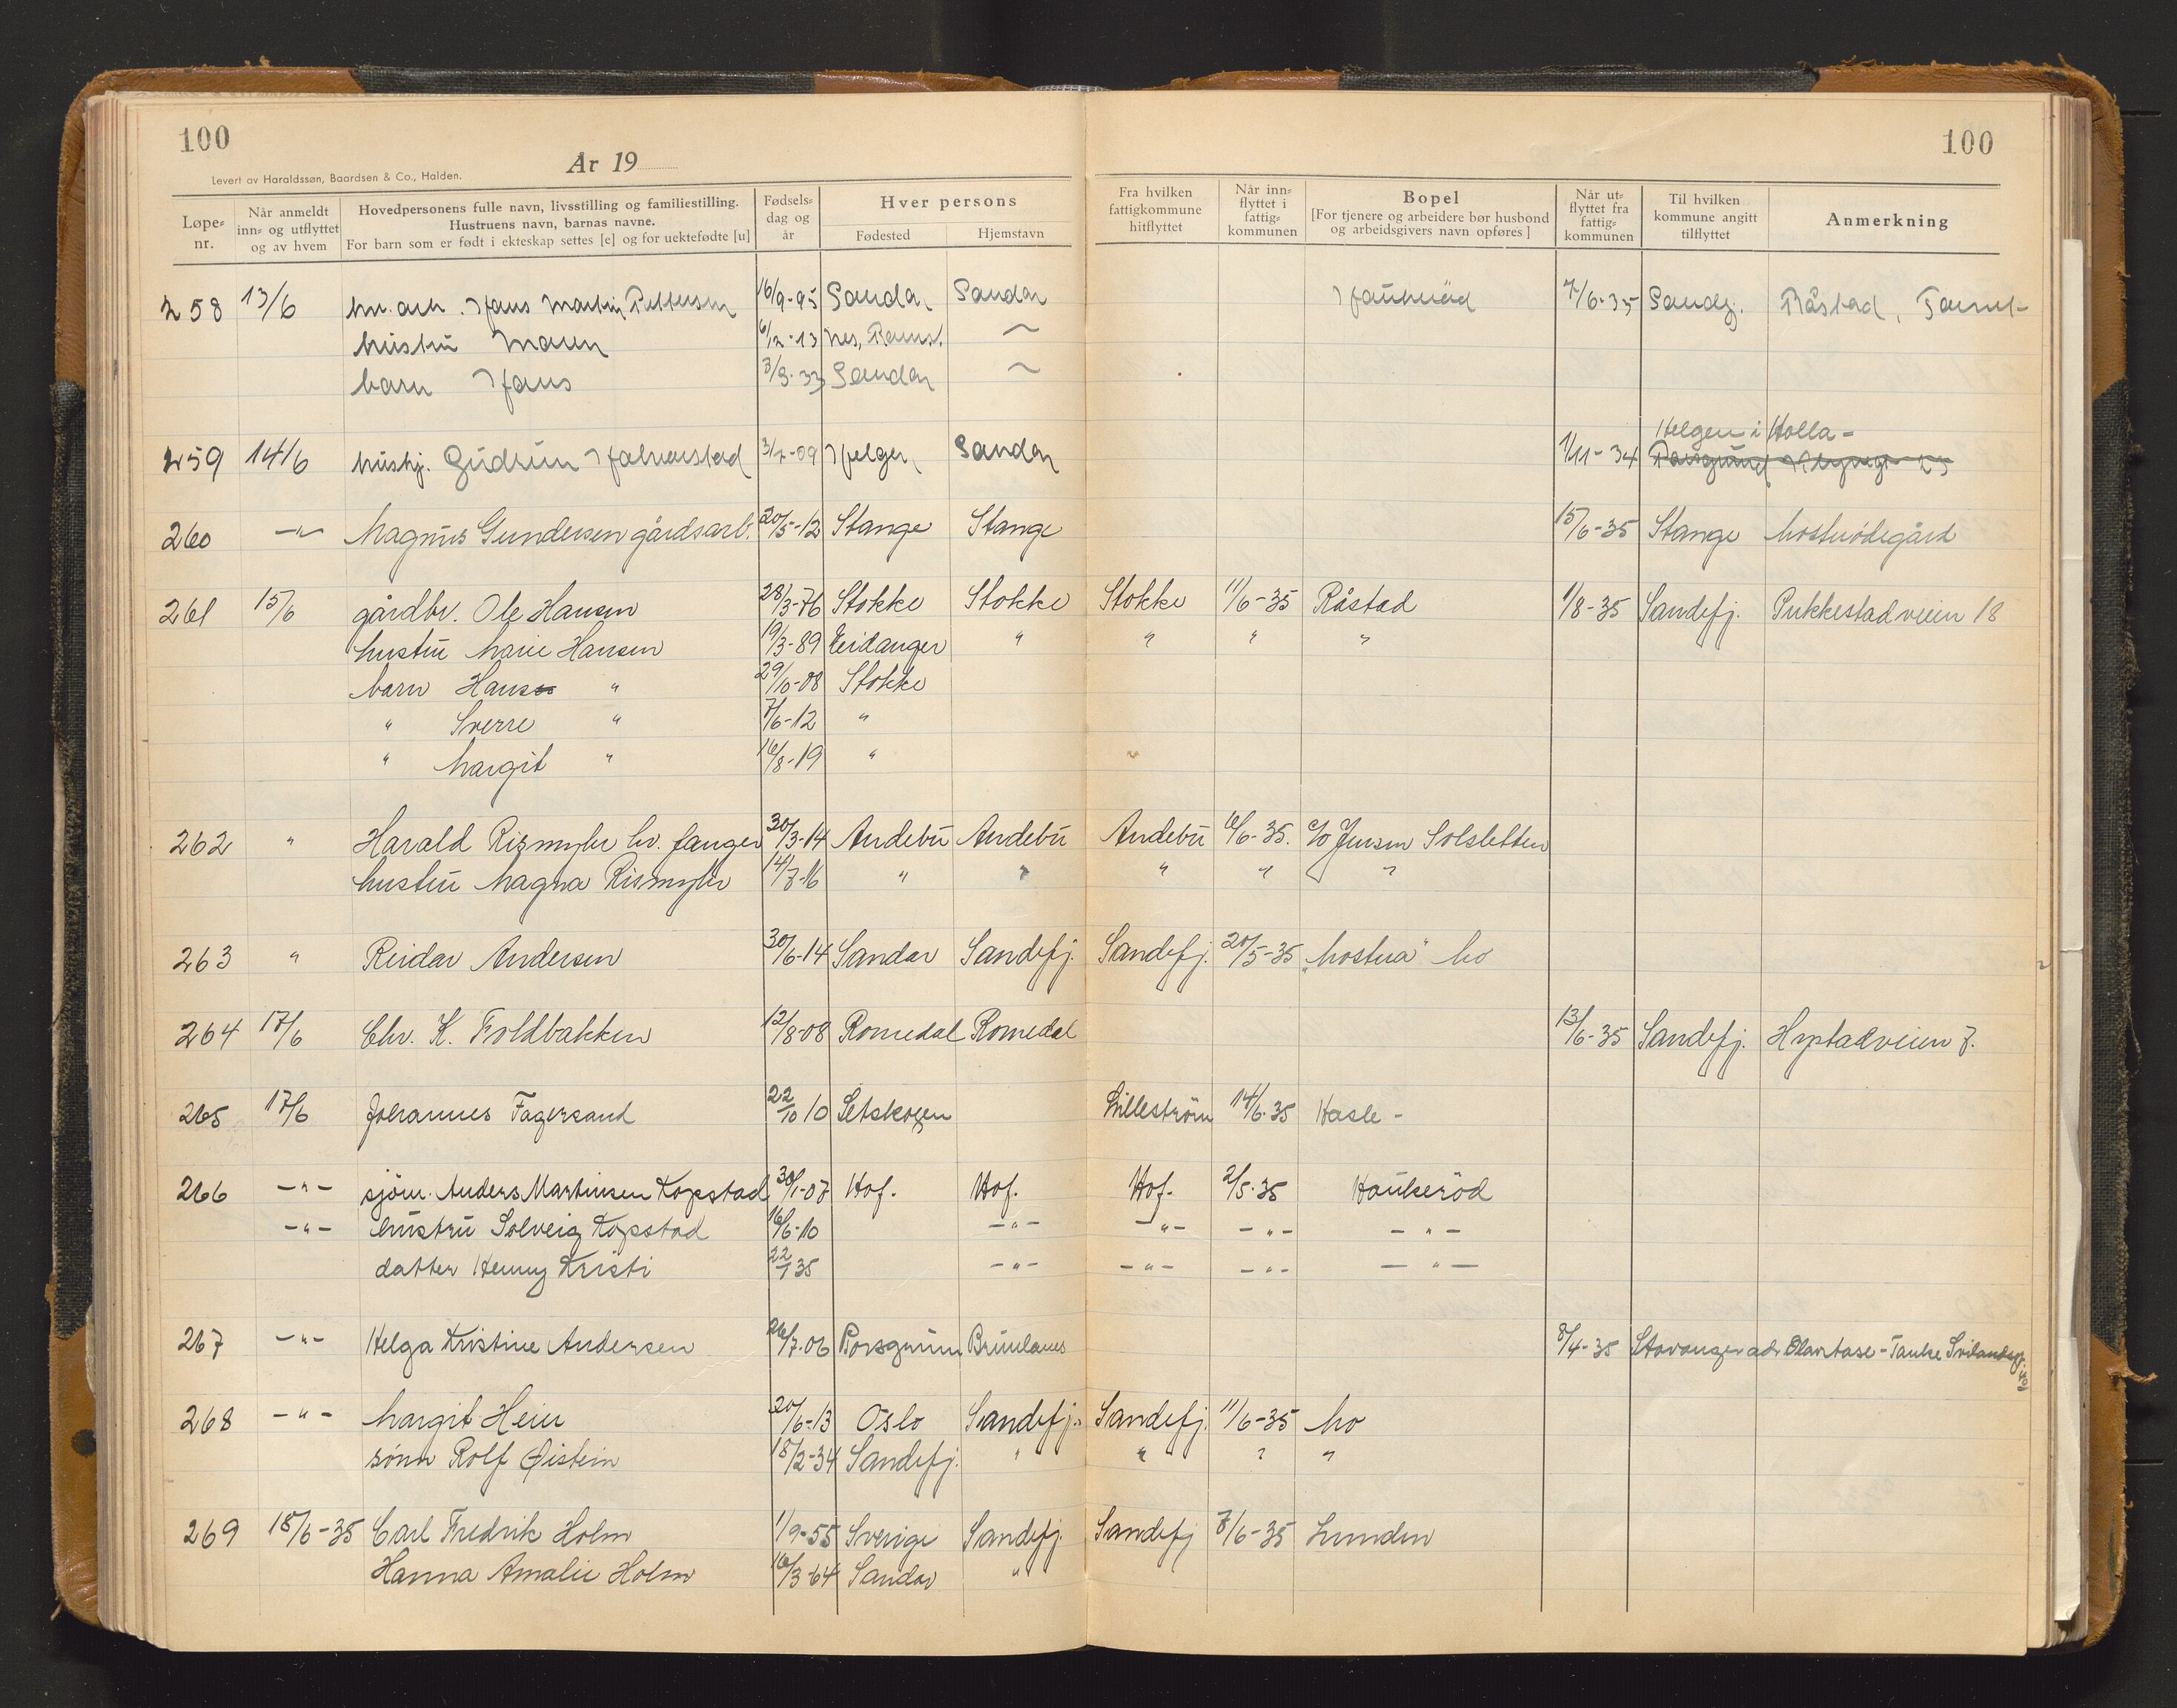 100
100
År 19
Levert av Haraldssøn, Baardsen & Co., Halden.
Løpe-nr. Når anmeldt inn- og utflyttet og av hvem Hovedpersonens fulle navn, livsstilling og familiestilling. Hustruens navn, barnas navne. For barn som er født i ekteskap settes [e] og for uektefødte [u] Fødsels-dag og år Hver persons Fødested Hjemstavn Fra hvilken fattigkommune hitflyttet Når inn-flyttet i fattig-kommunen Bopel [For tjenere og arbeidere bør husbond og arbeidsgivers navn opføres] Når ut-flyttet fra fattig-kommunen Til hvilken kommune angitt tilflyttet Anmerkning
258 13/6 hv. arb. Hans Martin Pettersen 16/9-95 Sandar Sandar Haukerød 7/6-35 Sandfj. Råstad,
hustru Maren 6/12-13 Nes,
barn Hans 7/9-33 Sandar
Helgen i Holla-
259 14/6 hushj. Gudrun Halvorstad 3/7-09 Helgen Sandar 1/11-34 Porsgrund
260 -"- Magnus Gundersen gårdsarb. 20/5-12 Stange Stange 15/6-35 Stange Mosterødegård
261 15/6 gårdbr. Ole Hansen 28/3-76 Stokke Stokke Stokke 11/6-35 Råstad 1/8-35 Sandefj. Pukkestadveien 18
hustru Marie Hansen 19/3-89 Eidanger " " " "
barn Hans " 29/10-08 Stokke
" Sverre " 7/6-12 "
" Margit " 16/8-19 "
262 " Harald Rismyhr hv. fanger 30/3-14 Andebu Andebu Andebu 6/6-35. c/o Jensen Solsletten
hustru Magna Rismyhr 14/7-16 " " " " "
263 " Reidar Andersen 30/6-14 Sandar Sandefj. Sandefj. 20/5-35 "Mostua" Mo
264 17/6 Chr. K. Foldbakken 12/8-08 Romedal Romedal 13/6-35 Sandefj. Hystadveien 7.
265 17/6 Johannes Fagersand 22/10 10 Setskogen Lilleström 14/6-35 Hasle-
266 -"- sjöm. Anders Martinsen Kopstad 30/1-07 Hof. Hof. Hof. 2/5-35 Haukeröd
-"- hustru Solveig Kopstad 16/6-10 -"- -"- -"- -"-
datter Henny Kristi 22/1 35 -"- -"- -"- -"-
267 -"- Helga Kristine Andersen 26/7-06 Porsgrunn Brunlanes 8/4-35 Stavanger adr.
268 -"- Margit Heier 20/6-13 Oslo Sandefj. Sandefj. 11/6-35 Mo
sönn Rolf Øistein 18/2-34 Sandefj. " " " "
269 18/6-35 Carl Fredrik Holm 1/9-55 Sverige Sandefj. Sandefj 7/6-35 Lunden
Hanna Amalie Holm 16/3-64 Sandar "